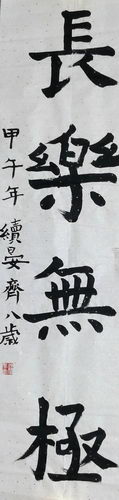 長樂無極
甲午年 續晏齊八歲